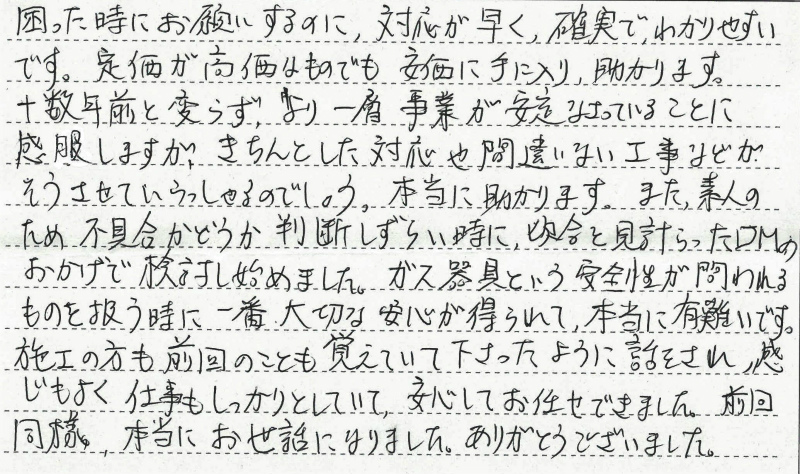 困った時にお願いするのに、対応が早く、確実で、わかりやすい
です。定価が高価なものでも安価に手に入り、助かります。
十数年前と変らず、より一層事業が安定なさっていることに
感服しますが、きちんとした対応や間違いない工事などが
そうさせていらっしゃるのでしょう。本当に助かります。また、素人の
ため不具合かどうか判断しずらい時に、頃合を見計らったDMの
おかげで検討し始めました。ガス器具という安全性が問われる
ものを扱う時に一番大切な安心が得られて、本当に有難いです。
施工の方も前回のことも覚えていて下さったように話をされ、感
じもよく仕事もしっかりとしていて、安心してお任せできました。前回
同様、本当にお世話になりました。ありがとうございました。